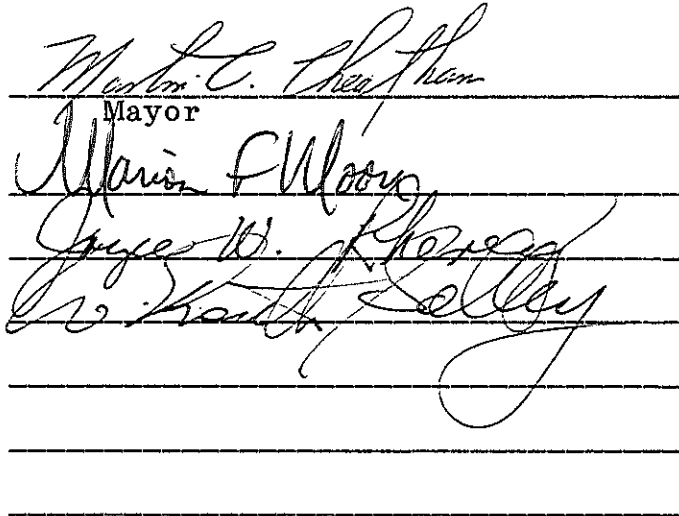 Martin C. Cheatham
Mayor
Marion F Moore
Joyce W.
W. Keith Kelley